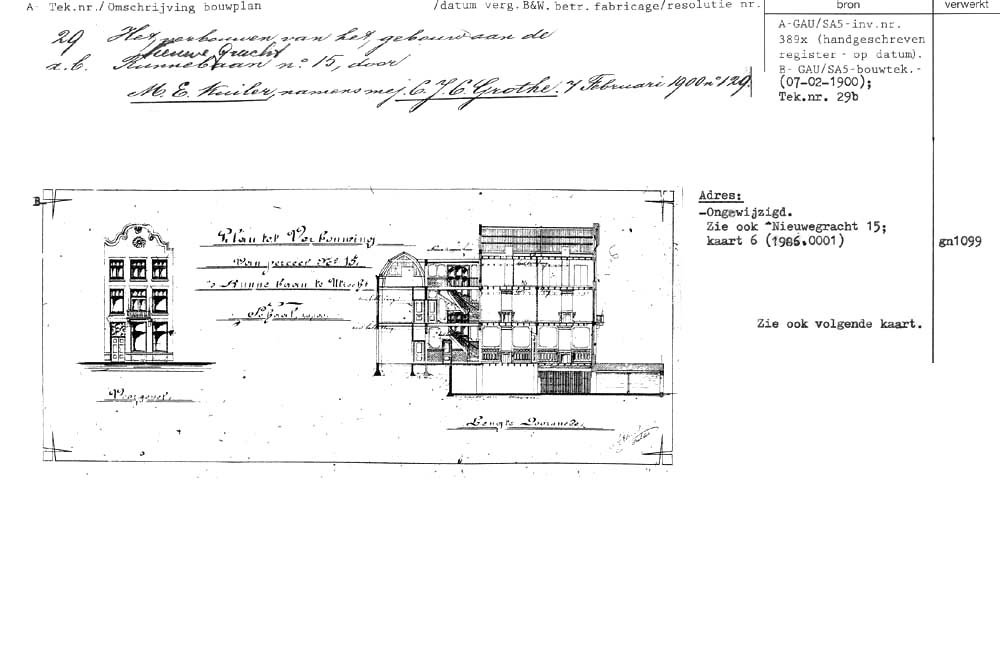 A- Tek.nr./Omschrijving bouwplan /datum verg.B&W. betr. fabricage/resolutie nr. bron verwerkt
29 Het verbouwen van het gebouw aan de
Nieuwe Gracht
a.b. Runnebaan no. 15, door
M. E. Kuiler, namens mej. C. J. C. Grothe. 7 Februari 1900 no 129.
A-GAU/SA5-inv.nr.
389x (handgeschreven
register - op datum).
B- GAU/SA5-bouwtek.-
(07-02-1900);
Tek.nr. 29b
B
Adres:
-Ongewijzigd.
Zie ook Nieuwegracht 15;
kaart 6 (1986.0001)
gn1099
Zie ook volgende kaart.
Plan tot Verbouwing
Van perceel No. 15.
Runnebaan te Utrecht
Schaal
Voorgevel.
Lengte Doorsnede.